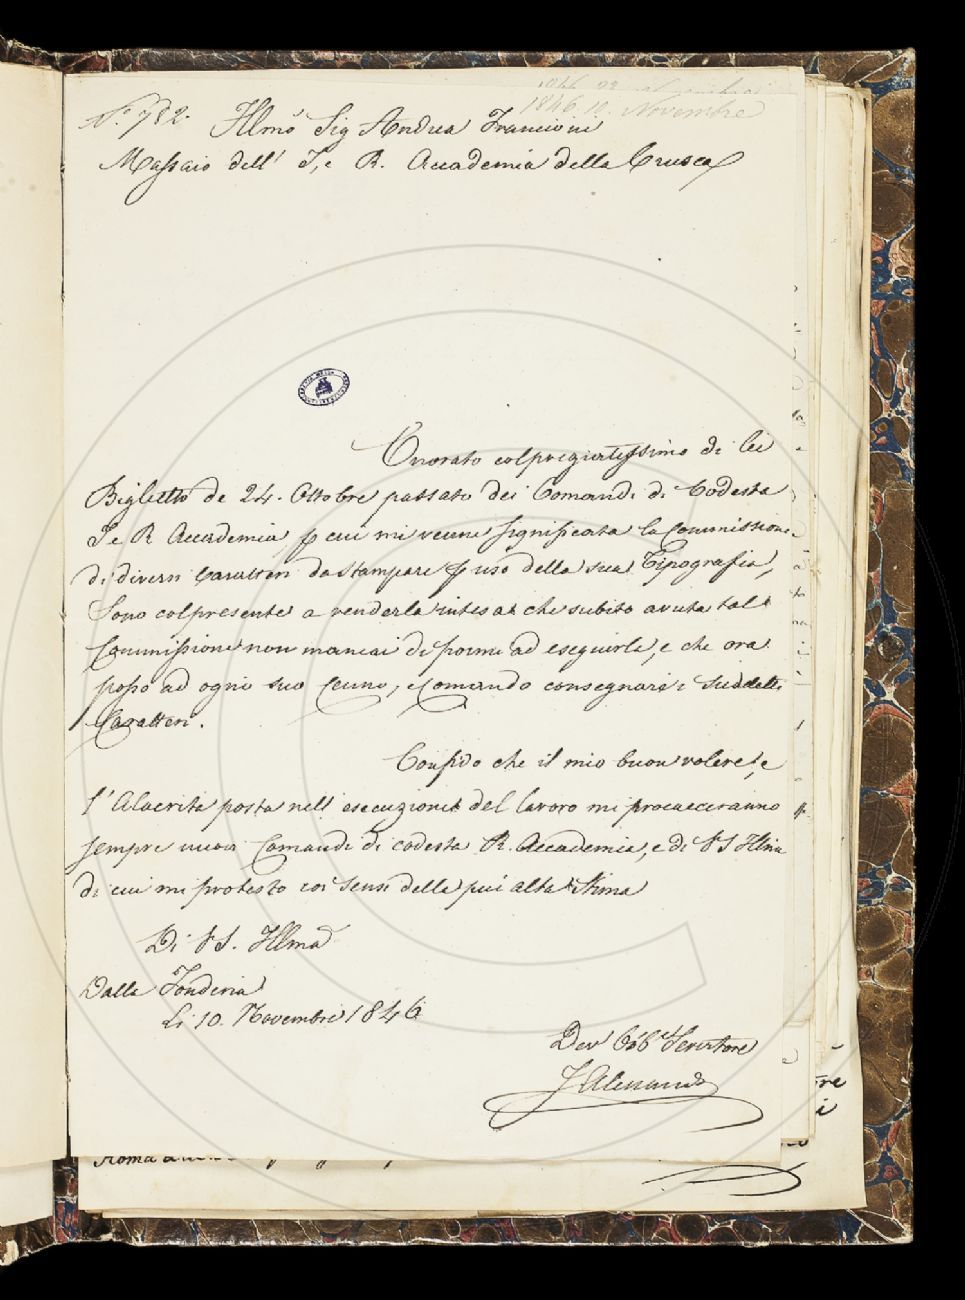 1846. 10. Novembre
N.° 782. Illmo Sig Andrea Francioni
Massaio dell' I, e R. Accademia della Crusca
Onorato col pregiatissimo di lei
Biglietto de 24. Ottobre passato dei Comandi di Codesta
I e R Accademia, p cui mi venne significata la Commissione
di diversi Caratteri da Stampare p uso della sua Tipografia,
Sono col presente a renderla intesa che subito avuta tale
Commissione non mancai di pormi ad eseguirla, e che ora
posso ad ogni suo Cenno, e Comando consegnare i suddetti
Caratteri.
Confido che il mio buon volere, e
l'Alacrità posta nell' esecuzione del lavoro mi procacceranno
sempre nuovi Comandi di codesta R. Accademia, e di V S Illma
di cui mi protesto coi sensi della più alta Stima
Di V S. Illma
Dalla Fonderia
Li 10. Novembre 1846
Dev Obb Servitore
J Alessandri
Roma